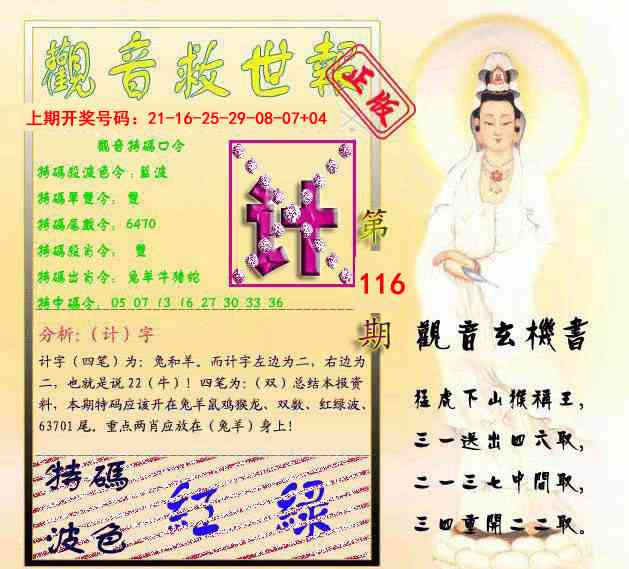 觀音救世報
正版
上期开奖号码：21-16-25-29-08-07+04
觀音特碼口令
特碼段波色令：藍波
特碼單雙令： 雙
特碼尾數令： 6470
特碼段肖令： 雙
特碼出肖令： 兔羊牛猪蛇
特中碼令： 05 07 13 16 27 30 33 36
计
第
116
期
分析：（计）字
计字（四笔）为：兔和羊。而计字左边为二，右边为
二，也就是说 22（牛）！四笔为：（双）总结本报资
料，本期特码应该开在兔羊鼠鸡猴龙、双数、红绿波、
63701 尾。重点两肖应放在（兔羊）身上！
特碼
波色
紅 綠
觀音玄機書
猛虎下山猴稱王，
三一送出四六取，
二一三七中間取，
三四重開二二取。